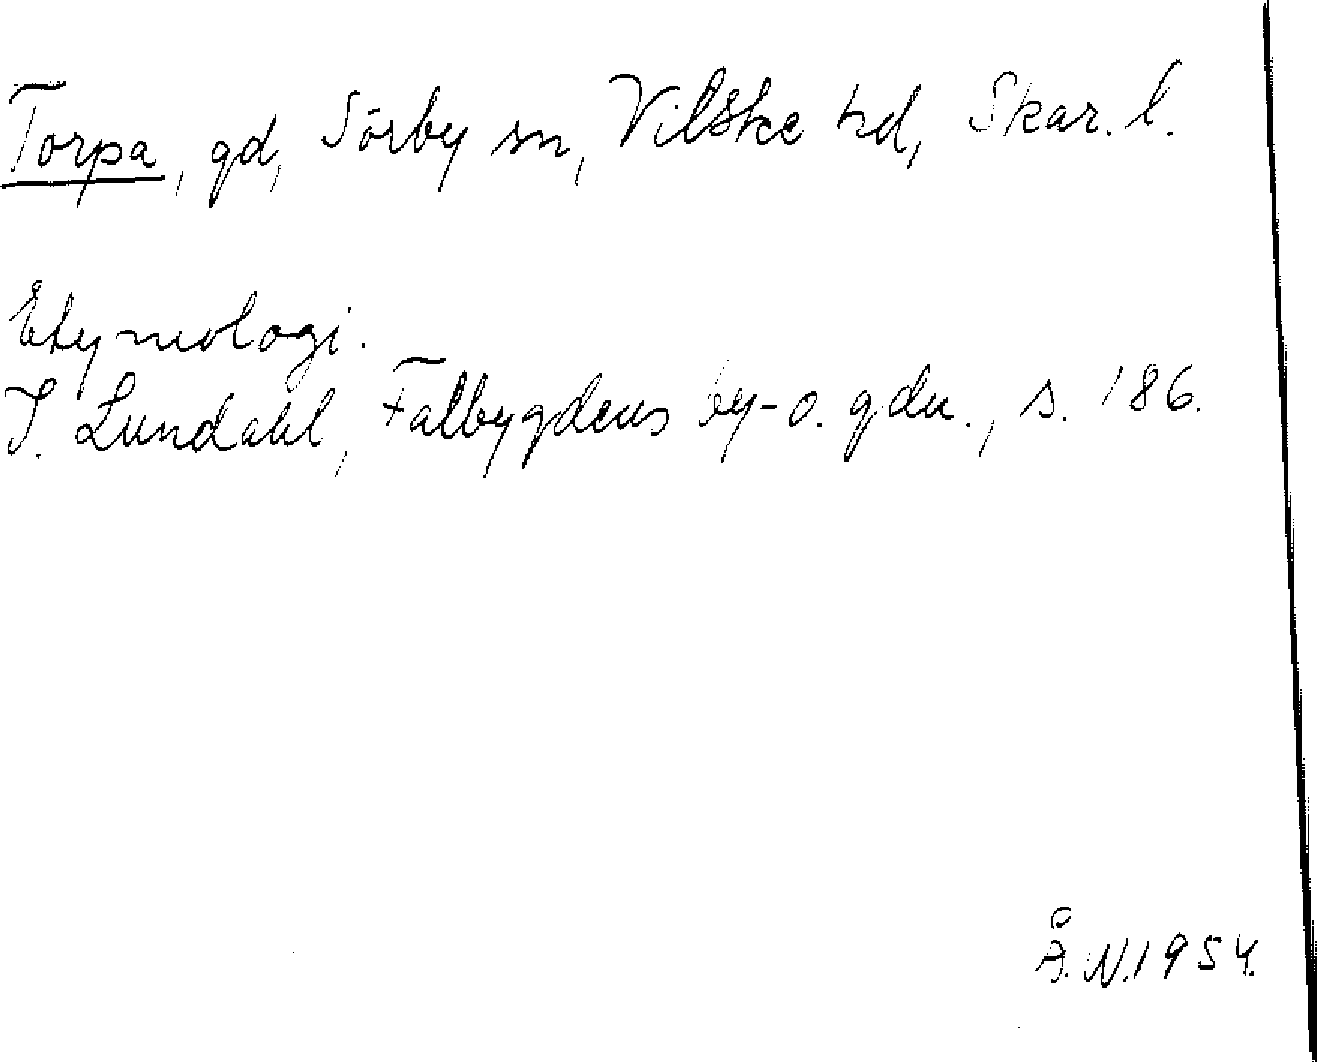 Torpa, gd, Sörby sn, Vilske hd, Skar. l.
Etymologi.
I. Lundahl, Falbygdens by- o. gdn., s. 186.
Å.N.1954.